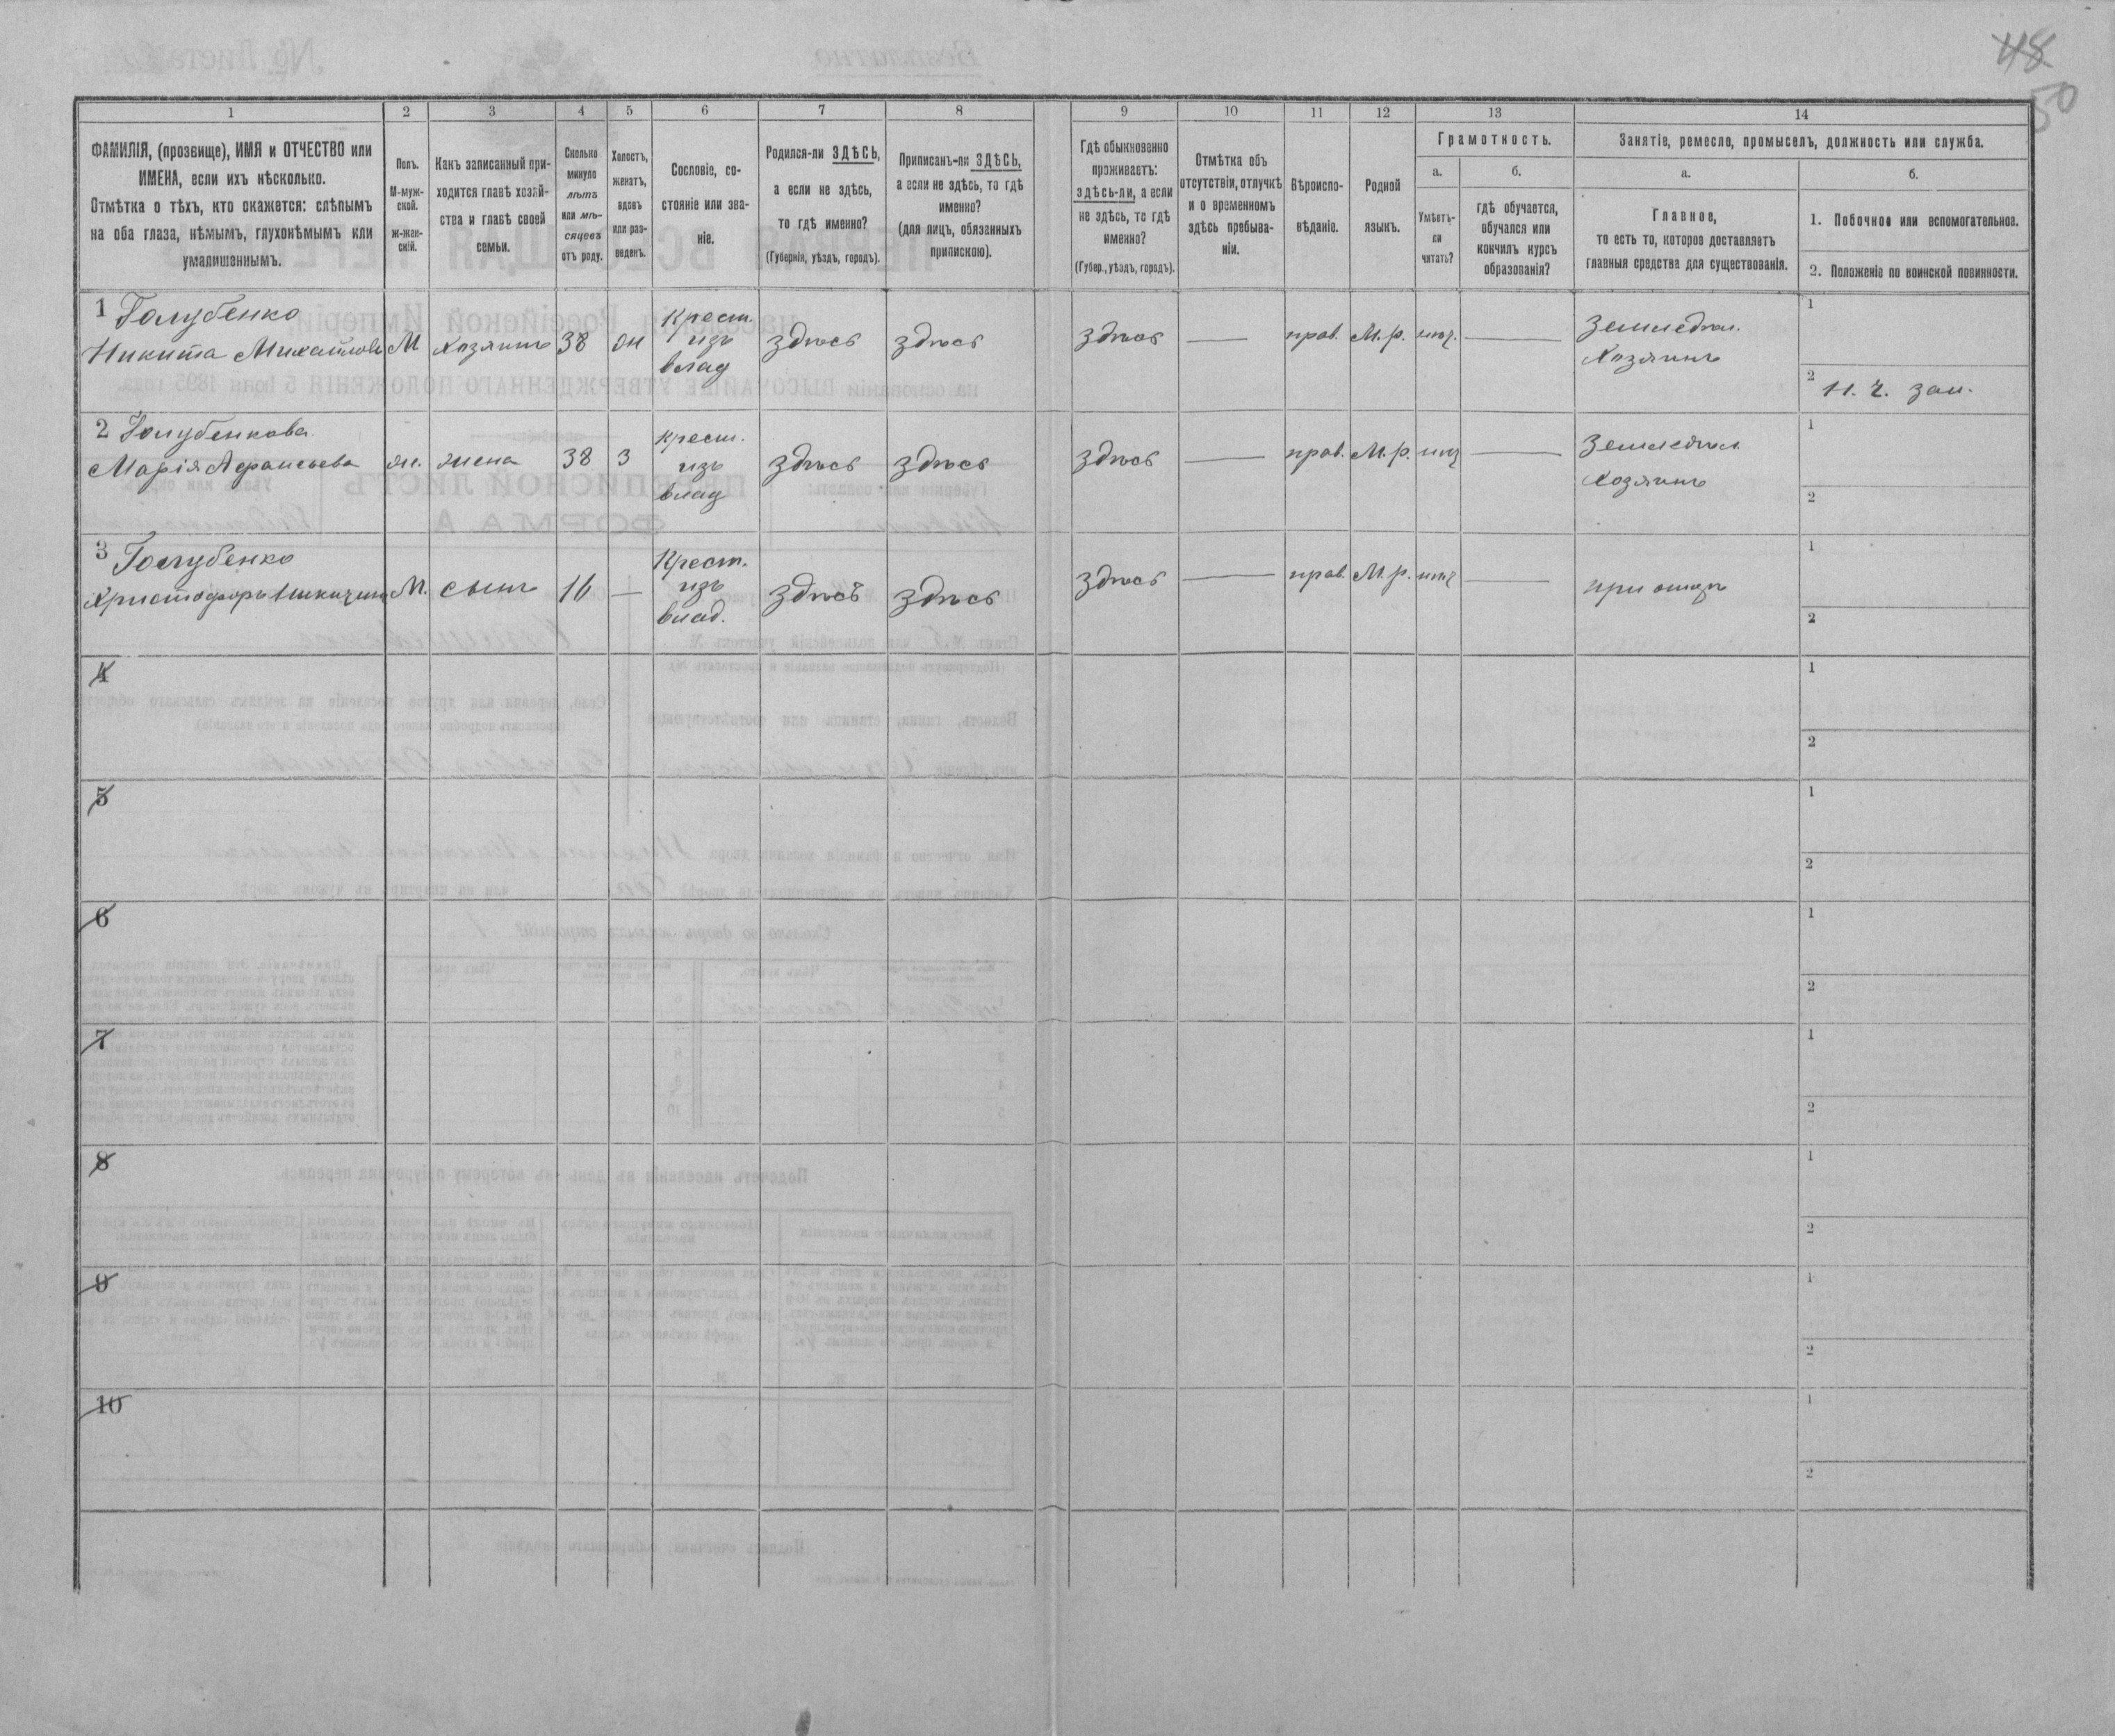 48
50
1 2 3 4 5 6 7 8 9 10 11 12 13 14
ФАМИЛІЯ, (прозвище), ИМЯ и ОТЧЕСТВО или
ИМЕНА, если ихъ нѣсколько.
Отмѣтка о тѣхъ, кто окажется: слѣпымъ
на оба глаза, нѣмымъ, глухонѣмымъ или
умалишеннымъ.
Полъ.
М-муж-
ской.
Ж-жен-
скій.
Какъ записанный при-
ходится главѣ хозяй-
ства и главѣ своей
семьи.
Сколько
минуло
лѣтъ
или мѣ-
сяцевъ
отъ роду.
Холостъ,
женатъ,
вдовъ
или раз-
веденъ.
Сословіе, со-
стояніе или зва-
ніе.
Родился-ли ЗДѢСЬ,
а если не здѣсь,
то гдѣ именно?
(Губернія, уѣздъ, городъ).
Приписанъ-ли ЗДѢСЬ,
а если не здѣсь, то гдѣ
именно?
(для лицъ, обязанныхъ
припискою).
Гдѣ обыкновенно
проживаетъ:
здѣсь-ли, а если
не здѣсь, то гдѣ
именно?
(Губер., уѣздъ, городъ).
Отмѣтка объ
отсутствіи, отлучкѣ
и о временномъ
здѣсь пребыва-
ніи.
Вѣроиспо-
вѣданіе.
Родной
языкъ.
Грамотность.
а.
Умѣетъ-
ли
читать?
б.
гдѣ обучается,
обучался или
кончилъ курсъ
образованія?
Занятіе, ремесло, промыселъ, должность или служба.
а.
Главное,
то есть то, которое доставляетъ
главныя средства для существованія.
б.
1. Побочное или вспомогательное.
2. Положеніе по воинской повинности.
1 Голубенко
Никита Михайловъ М Хозяинъ 38 Ж Крест. изъ влад здѣсь здѣсь здѣсь — прав. М.р. нѣт. — Земледѣл. Хозяинъ
1
2 Н. Ч. зап.
2 Голубенкова
Марія Афанасьева ж. жена 38 З крест. изъ влад здѣсь здѣсь здѣсь — прав. М.р. нѣт — Земледѣл Хозяинъ
1
2
3 Голубенко
Христофоръ Никитинъ М. сынъ 16 — Крест. изъ влад. здѣсь здѣсь здѣсь — прав. М.р. нѣт — при отцѣ
1
2
4
1
2
5
1
2
6
1
2
7
1
2
8
1
2
9
1
2
10
1
2